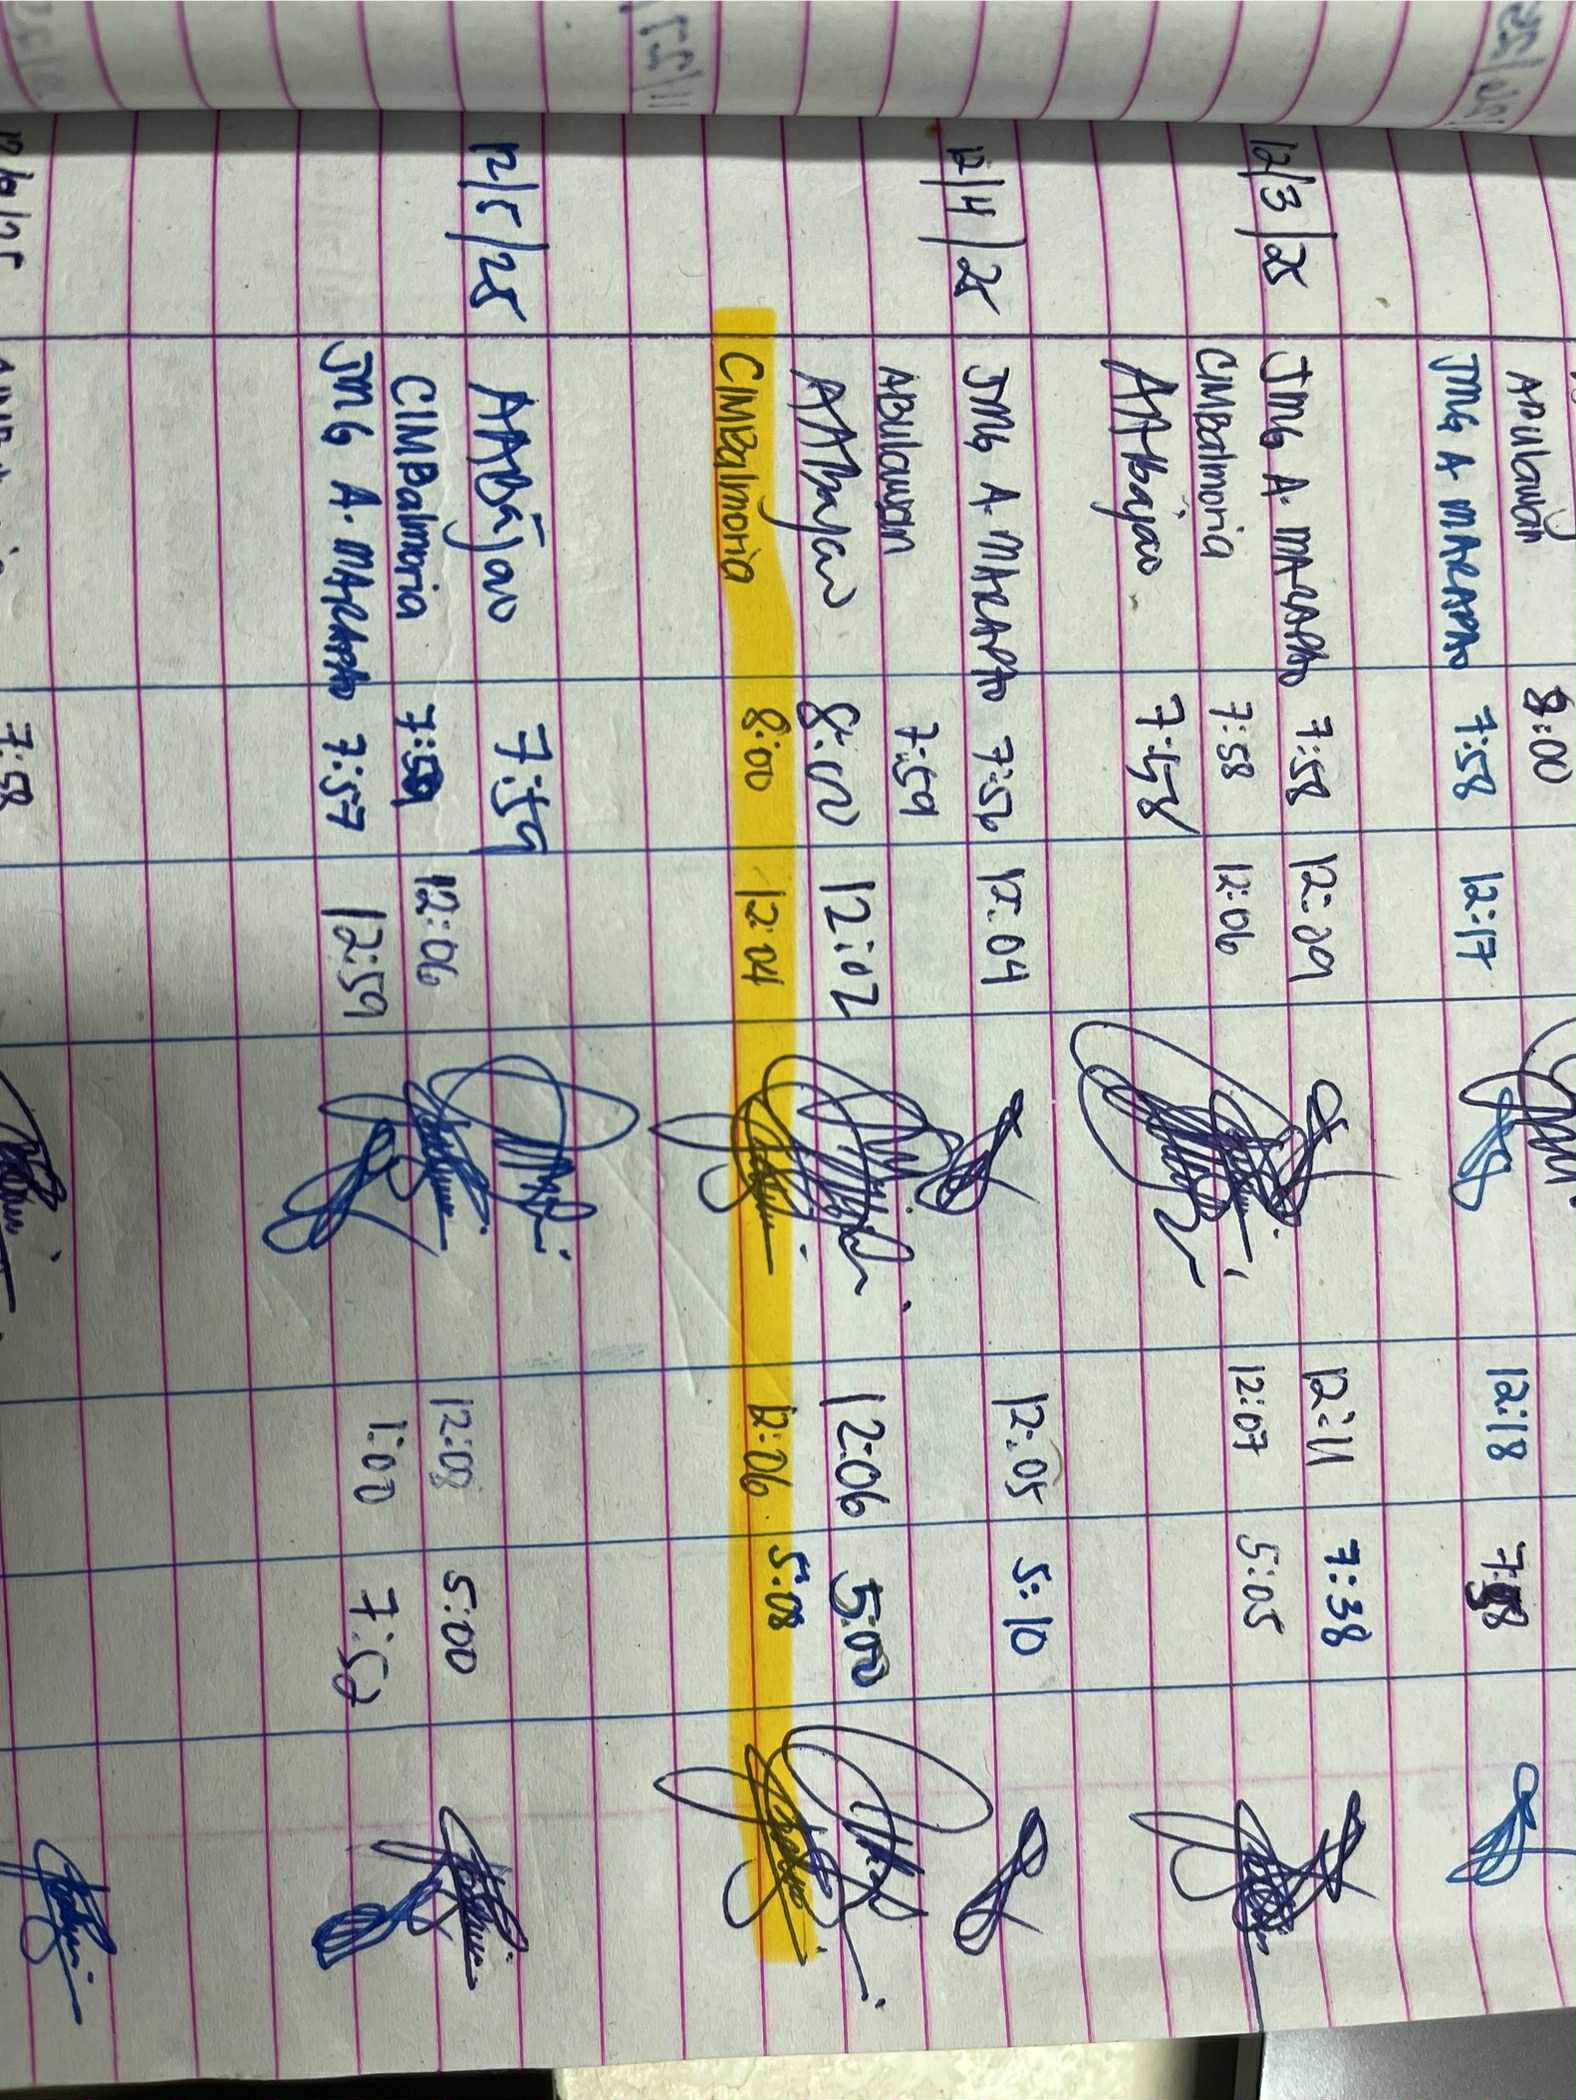 Apulawan 8:00
JMG A. MARAPAO 7:58 12:17 12:18
12/3/25 JMG A. MARAPAO 7:58 12:09 12:11 7:38
CIMBalmoria 7:58 12:06 12:07 5:05
AABajao 7:58
12/4/25 JMG A. MARAPAO 7:56 12:04 12:05 5:10
ABulawan 7:59
AABajao 8:00 12:02 12:06 5:00
CIMBalmoria 8:00 12:04 12:06 5:08
12/5/25 AABajao 7:59
CIMBalmoria 7:59 12:06 12:08 5:00
JMG A. MARAPAO 7:57 12:59 1:00 7:52
7:58